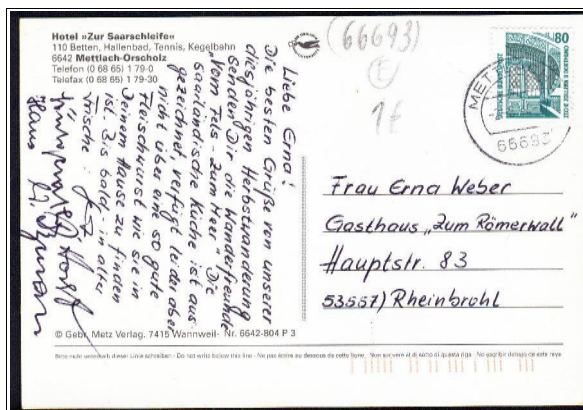 Hotel »Zur Saarschleife«
110 Betten, Hallenbad, Tennis, Kegelbahn
6642 Mettlach-Orscholz
Telefon (0 68 65) 1 79-0
Telefax (0 68 65) 1 79-30
(66693)
E
80
DEUTSCHE BUNDESPOST
METT
66693
Liebe Erna!
Die besten Grüße von unserer
diesjährigen Herbstwanderung
senden Dir die Wanderfreunde
"Vom Fels - zum Meer". Die
saarländische Küche ist aus-
gezeichnet, verfügt leider aber
nicht über eine so gute
Fleischwurst wie sie in
Deinem Hause zu finden
ist. Bis bald in alter
Frische!
Frau Erna Weber
Gasthaus „Zum Römerwall"
Hauptstr. 83
53557) Rheinbrohl
© Gebr. Metz Verlag. 7415 Wannweil - Nr. 6642-804 P 3
Bitte nicht unterhalb dieser Linie schreiben - Do not write below this line - Ne pas écrire au dessous de cette ligne - Non scrivere al di sotto di questa riga - No escribir debajo de esta raya